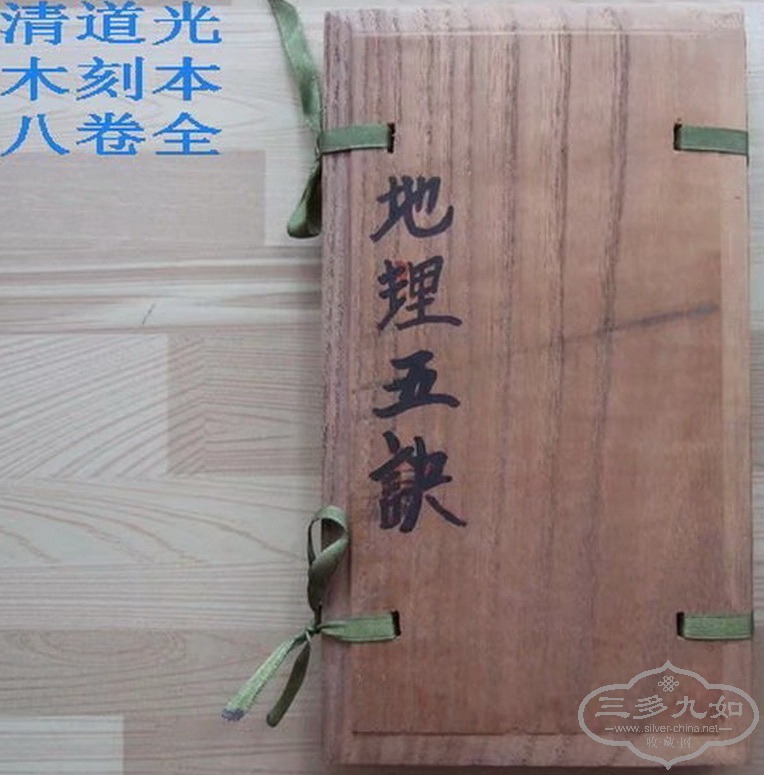 清道光
木刻本
八卷全
地理五訣
三多九如
www.silver-china.net
收藏网